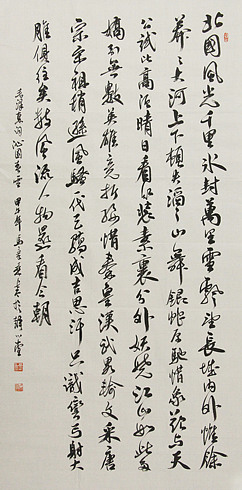 北國風光千里冰封萬里雪飄望長城內外惟餘
莽々大河上下頓失滔々山舞銀蛇原馳蠟象欲與天
公試比高須晴日看紅裝素裹分外妖嬈江山如此多
嬌引無數英雄競折腰惜秦皇漢武略輸文采唐
宗宋祖稍遜風騷一代天驕成吉思汗只識彎弓射大
雕俱往矣數風流人物還看今朝
毛澤東詞沁園春雪 甲午年